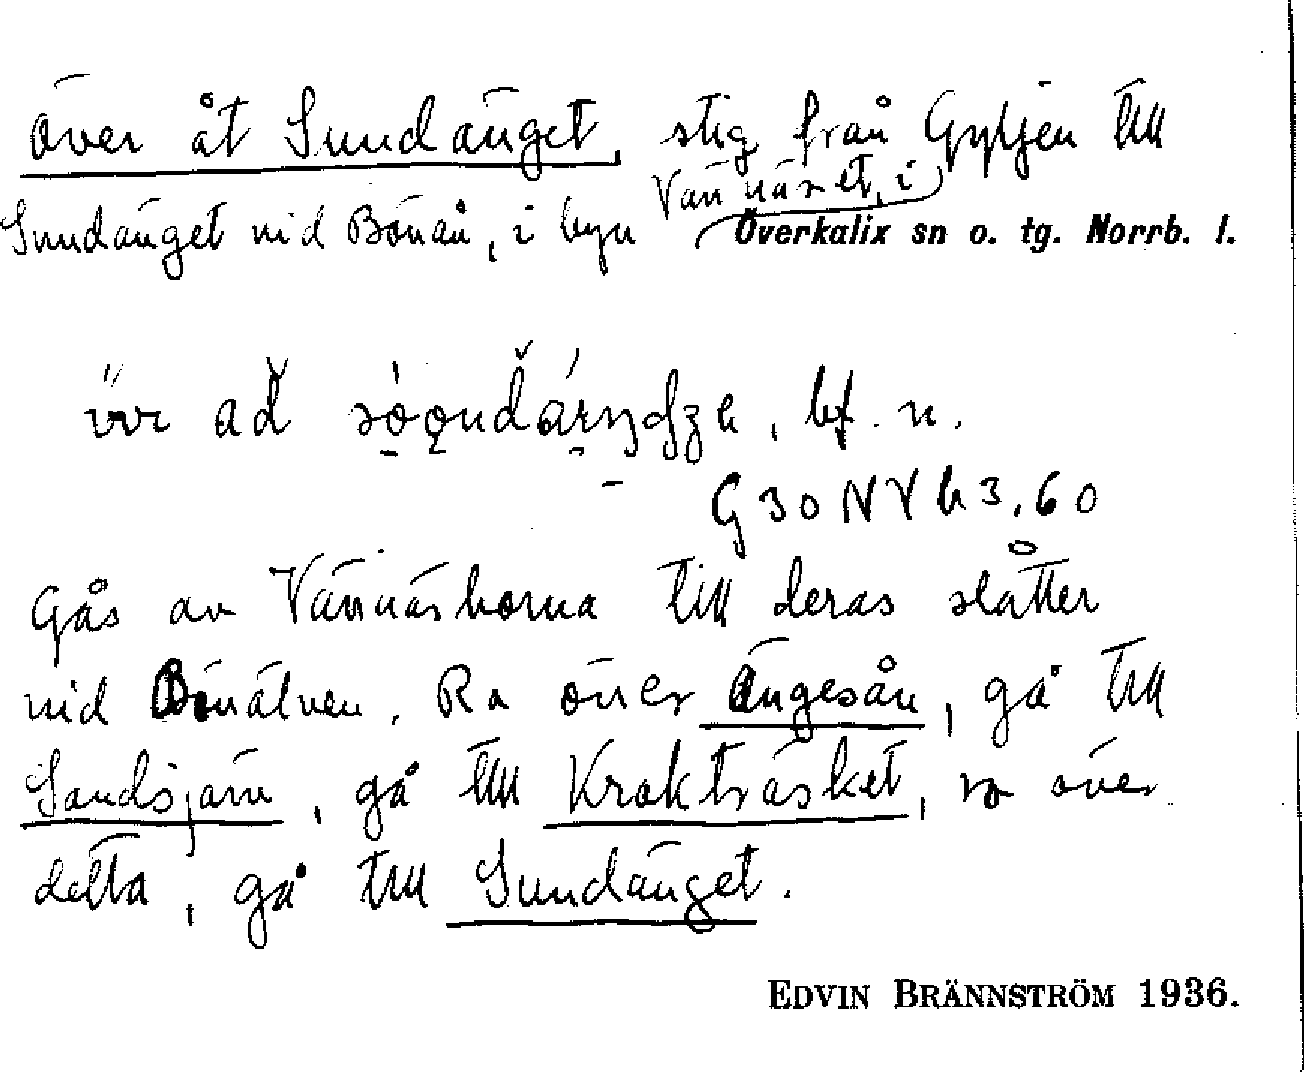 över åt Sundänget, stig från Gyljen till
Sundänget vid Bönån, i byn Vännäset, i
Överkalix sn o. tg. Norrb. l.
bf. n.
G30NVh3.60
Gås av Vännäsborna till deras slåtter
vid Bönälven. Ro över Ängesån, gå till
Sandsjärv, gå till Krokträsket, ro över
detta, gå till Sundänget.
EDVIN BRÄNNSTRÖM 1936.